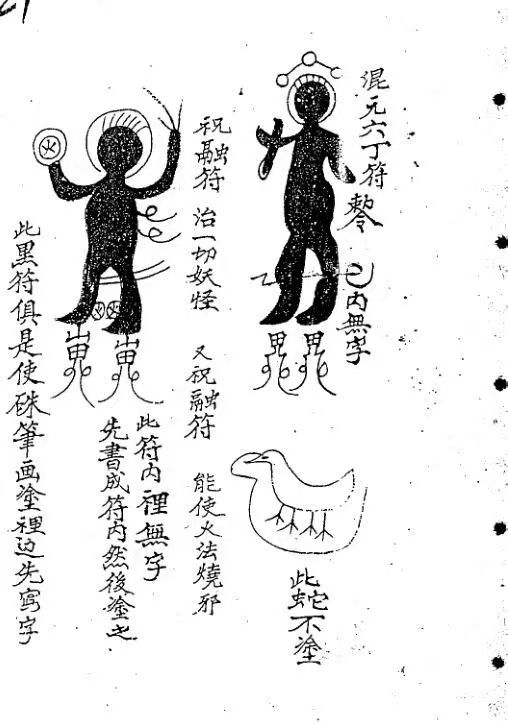 混元六丁符
己内無字
此蛇不塗
祝融符 治一切妖怪 又祝融符 能使火法燒邪
火
此符内裡無字
先書成符内然後塗之
此黑符俱是使硃筆画塗裡边先寫字